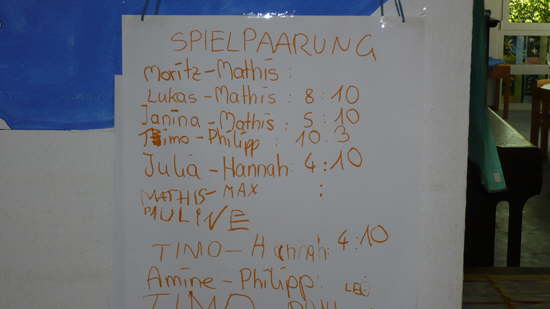 SPIELPAARUNG
Moritz-Mathis :
Lukas-Mathis : 8:10
Janina-Mathis : 5:10
Timo-Philipp : 10:3
Julia-Hannah: 4:10
MATHIS-MAX :
MULINE
TIMO-Hannah: 4:10
Amine-Philipp:
TIMO